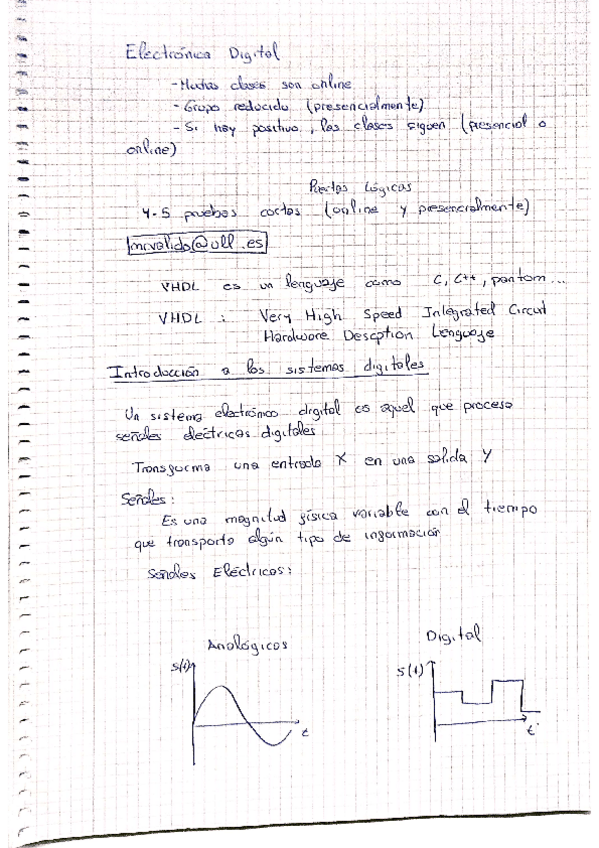 Electrónica Digital
- Muchas clases son online
- Grupo reducido (presencialmente)
- Si hay positivo, las clases siguen (presencial o
online)
Puertas Lógicas
4-5 pruebas cortas (online y presencialmente)
mrvalido@ull.es
VHDL es un lenguaje como C, C++, pantom...
VHDL: Very High Speed Integrated Circuit
Hardware Desception Lenguaje
Introducción a los sistemas digitales
Un sistema electrónico digital es aquel que procesa
señales eléctricas digitales
Transforma una entrada X en una salida Y
Señales:
Es una magnitud física variable con el tiempo
que transporta algún tipo de información
Señales Eléctricas:
Analógicas
Digital
S(t)
t
S(t)
t